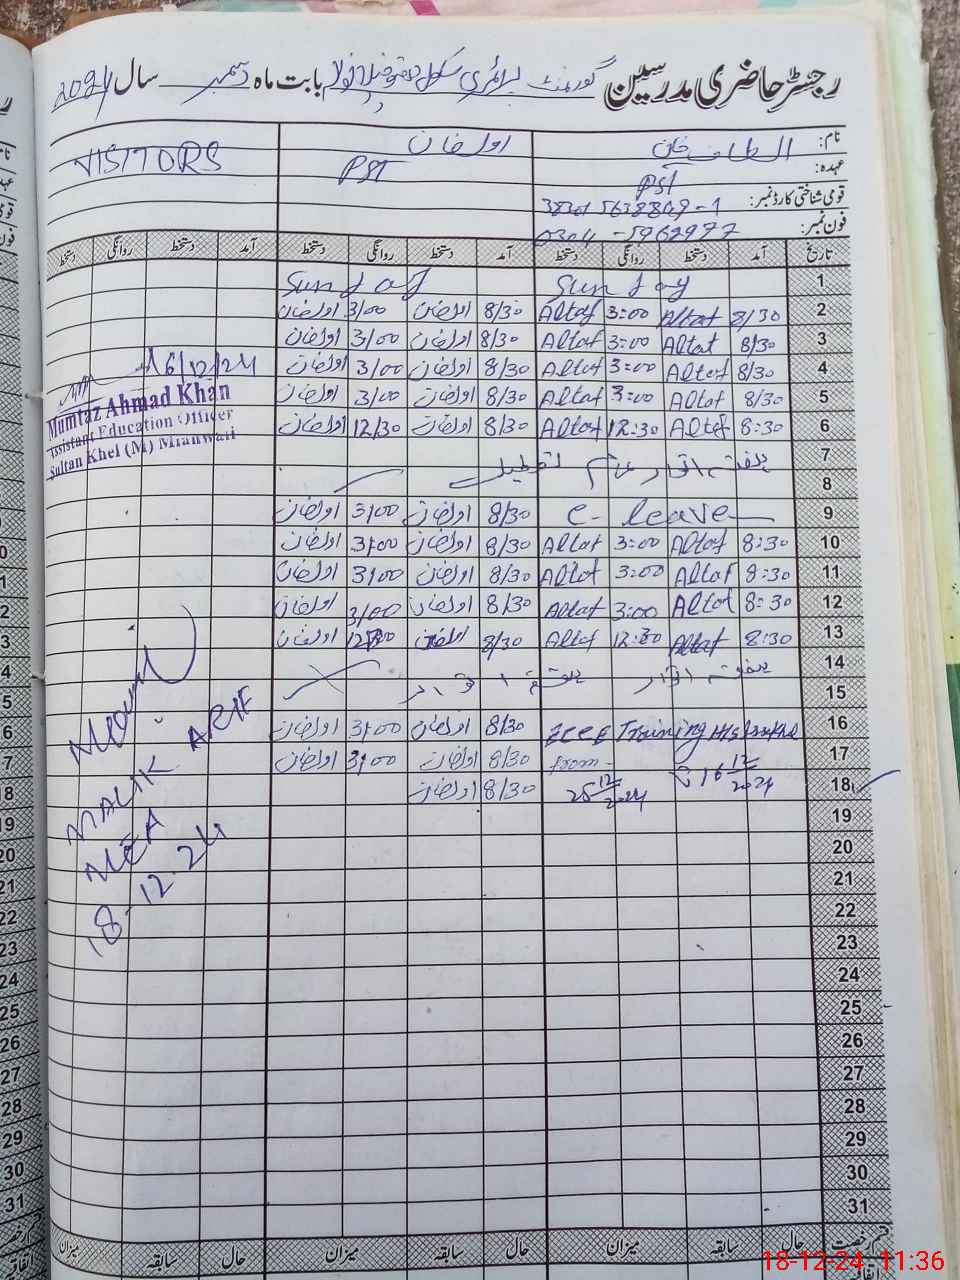 رجسٹر حاضری مدرسین گورنمنٹ پرائمری سکول بابت ماہ دسمبر سال 2024
نام: الطاف خان اول خان VISITORS
عہدہ: PST PST
قومی شناختی کارڈ نمبر: 38301 5638869-1
فون نمبر: 0304-5962977
تاریخ آمد دستخط روانگی دستخط آمد دستخط روانگی دستخط آمد دستخط روانگی دستخط
1 Sunday Sunday
2 8/30 Altaf 3:00 Altaf 8/30 اول خان 3/00 اول خان
3 8/30 Altaf 3:00 Altaf 8/30 اول خان 3/00 اول خان
4 8/30 Altaf 3:00 Altaf 8/30 اول خان 3/00 اول خان
5 8/30 Altaf 3:00 Altaf 8/30 اول خان 3/00 اول خان
6 8:30 Altaf 12:30 Altaf 8/30 اول خان 12/30 اول خان
7 ہفتہ اتوار عام تعطیل
8
9 e- leave 8/30 اول خان 3/00 اول خان
10 8:30 Altaf 3:00 Altaf 8/30 اول خان 3/00 اول خان
11 8:30 Altaf 3:00 Altaf 8/30 اول خان 3/00 اول خان
12 8:30 Altaf 3:00 Altaf 8/30 اول خان 3/00 اول خان
13 8:30 Altaf 12:30 Altaf 8/30 اول خان اول خان
14 ہفتہ اتوار ہفتہ اتوار
15
16 ECCE Training 8/30 اول خان 3/00 اول خان
17 from- 16 12/2024 8/30 اول خان 3/00 اول خان
18 25 12/2024 8/30 اول خان
19
20
21
22
23
24
25
26
27
28
29
30
31
16/12/24
Mumtaz Ahmad Khan
Assistant Education Officer
Sultan Khel (M) Mianwali
MALIK ARIF
MEA
18-12-24
قسم رخصت حال سابقہ میزان حال سابقہ میزان حال سابقہ میزان
18-12-24 11:36